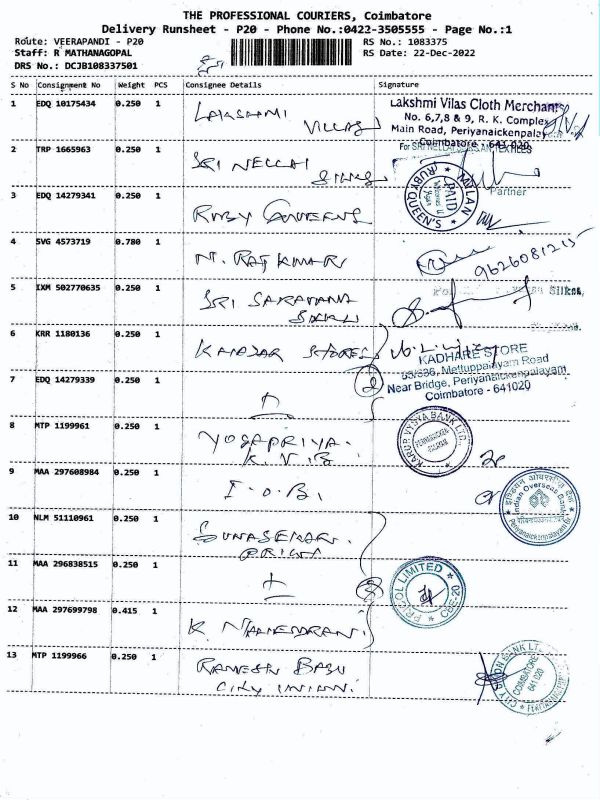 THE PROFESSIONAL COURIERS, Coimbatore
Delivery Runsheet - P20 - Phone No.:0422-3505555 - Page No.:1
Route: VEERAPANDI - P20
RS No.: 1083375
Staff: R MATHANAGOPAL
RS Date: 22-Dec-2022
DRS No.: DCJB108337501
S No Consignment No Weight PCS Consignee Details Signature
1 EDQ 10175434 0.250 1 LAKSHMI VILLAS
Lakshmi Vilas Cloth Merchants
No. 6,7,8 & 9, R. K. Complex
Main Road, Periyanaickenpalay
Coimbatore - 641 020
2 TRP 1665963 0.250 1 SRI NELLAI SILKS
Partner
3 EDQ 14279341 0.250 1 RUBY QUEENS
RUBY QUEEN'S
PAID
4 SVG 4573719 0.780 1 N. RAJ KUMAR
9626081215
5 IXM 502770635 0.250 1 SRI SARAVANA
Silks,
6 KRR 1180136 0.250 1 STORES
KADHARE STORE
Mettuppalayam Road
Near Bridge, Periyanaickenpalayam
Coimbatore - 641020
7 EDQ 14279339 0.250 1
8 MTP 1199961 0.250 1 YOGAPRIYA.
K.V.B
KARUR VYSYA BANK LTD.
9 MAA 297608984 0.250 1 I.O.B.
Indian Overseas Bank
Periyanaickenpalayam Br.
10 NLM 51110961 0.250 1 GUNASEKARAN
PRICOL
11 MAA 296838515 0.250 1
PRICOL LIMITED
CBE-20
12 MAA 297699798 0.415 1
13 MTP 1199966 0.250 1 RAMESH BABU
CITY UNION.
CITY UNION BANK LTD
COIMBATORE
641 020